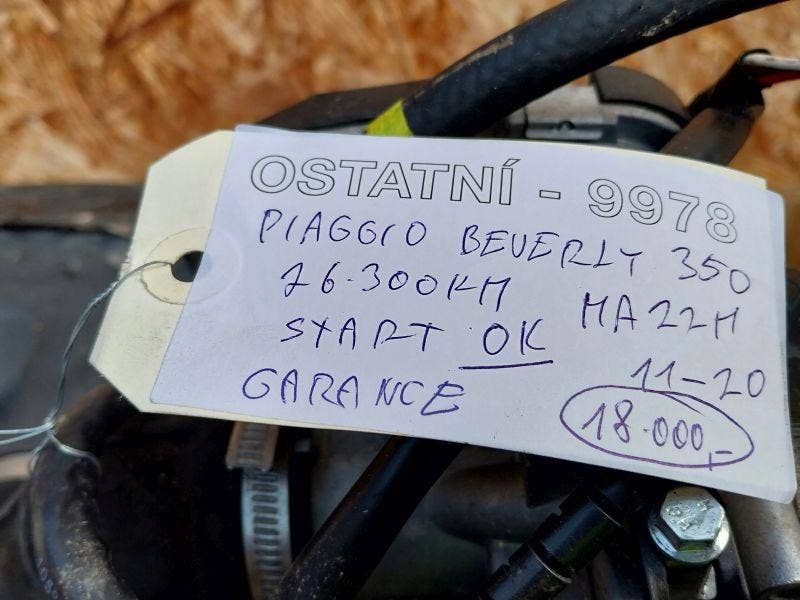 OSTATNÍ - 9978
PIAGGIO BEVERLY 350
26.300KM MA22M
START OK 11-20
GARANCE 18.000,-